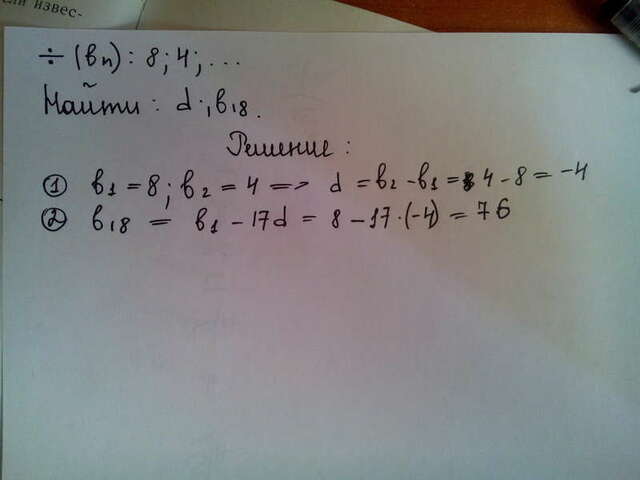 ли извес-
÷ (вn) : 8; 4; ...
Найти : d ; в18.
Решение :
① в1 = 8 ; в2 = 4 => d = в2 - в1 = 4 - 8 = -4
② в18 = в1 - 17d = 8 - 17·(-4) = 76